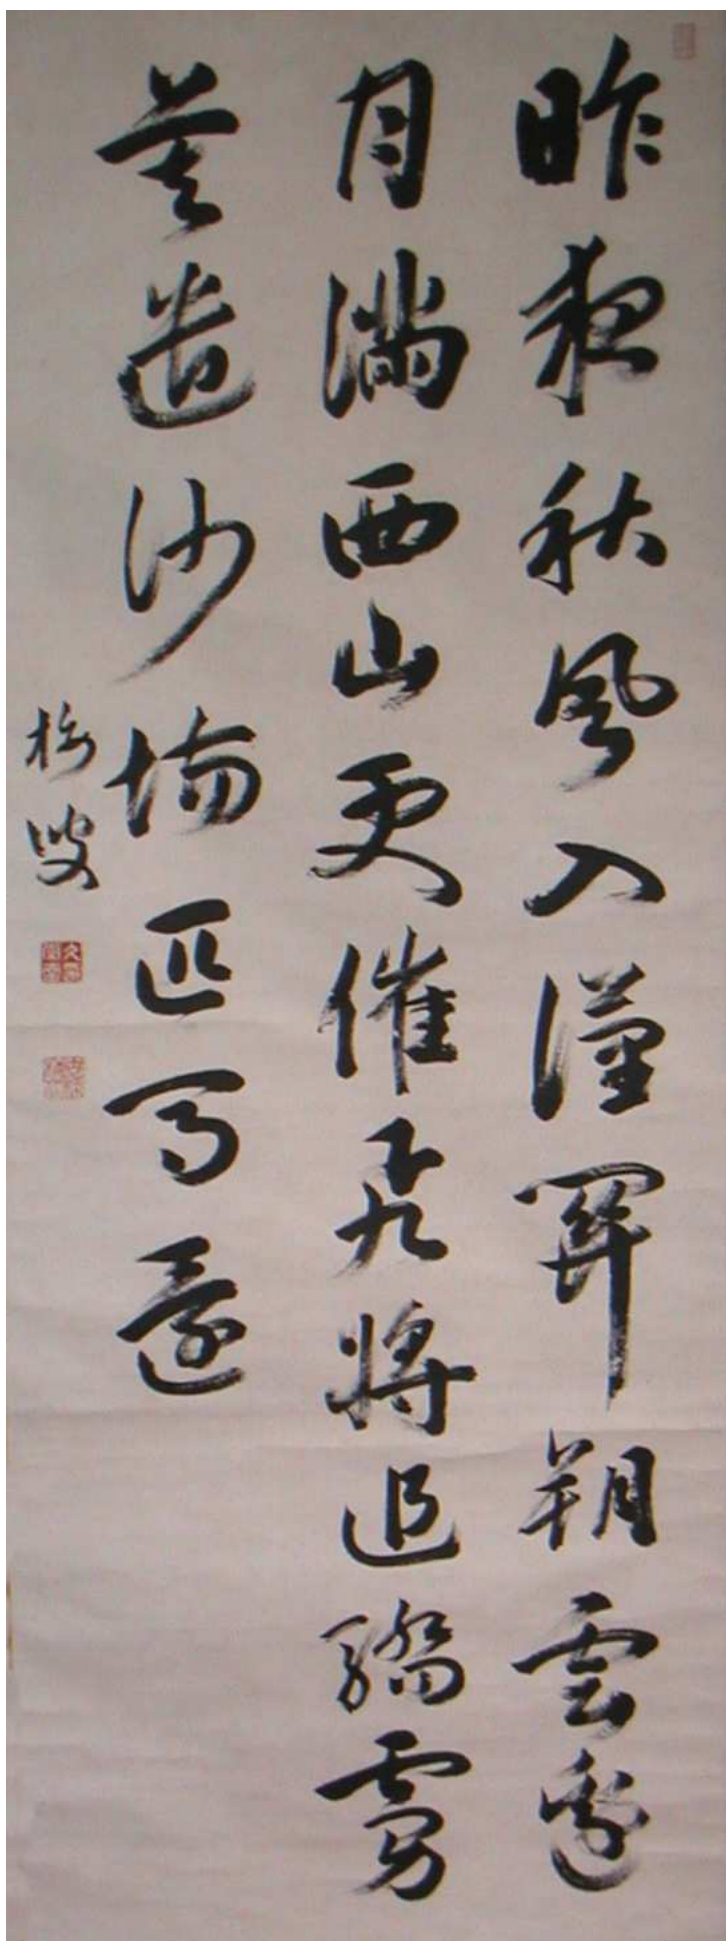 昨夜秋風入漢關朔雲邊
月滿西山更催飛將追驕虜
莫遣沙場匹馬還